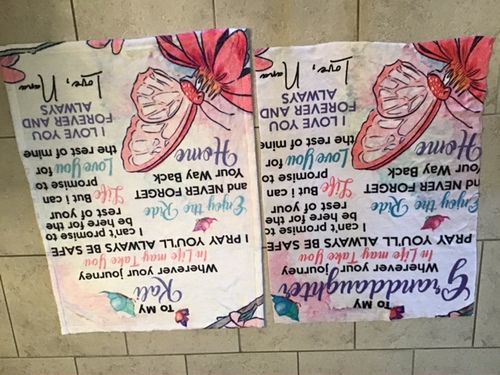 To My
Kali
Wherever your journey
In Life may Take You
I PRAY YOU'LL ALWAYS BE SAFE
Enjoy the Ride
and NEVER FORGET
Your Way Back
Home
I can't promise to
be here for the
rest of your
Life But i can
promise to
Love You for
the rest of mine
I LOVE YOU
FOREVER AND
ALWAYS
Love, Nana
To My
Granddaughter
Wherever your journey
In Life may Take You
I PRAY YOU'LL ALWAYS BE SAFE
Enjoy the Ride
and NEVER FORGET
Your Way Back
Home
I can't promise to
be here for the
rest of your
Life But i can
promise to
Love You for
the rest of mine
I LOVE YOU
FOREVER AND
ALWAYS
Love, Nana